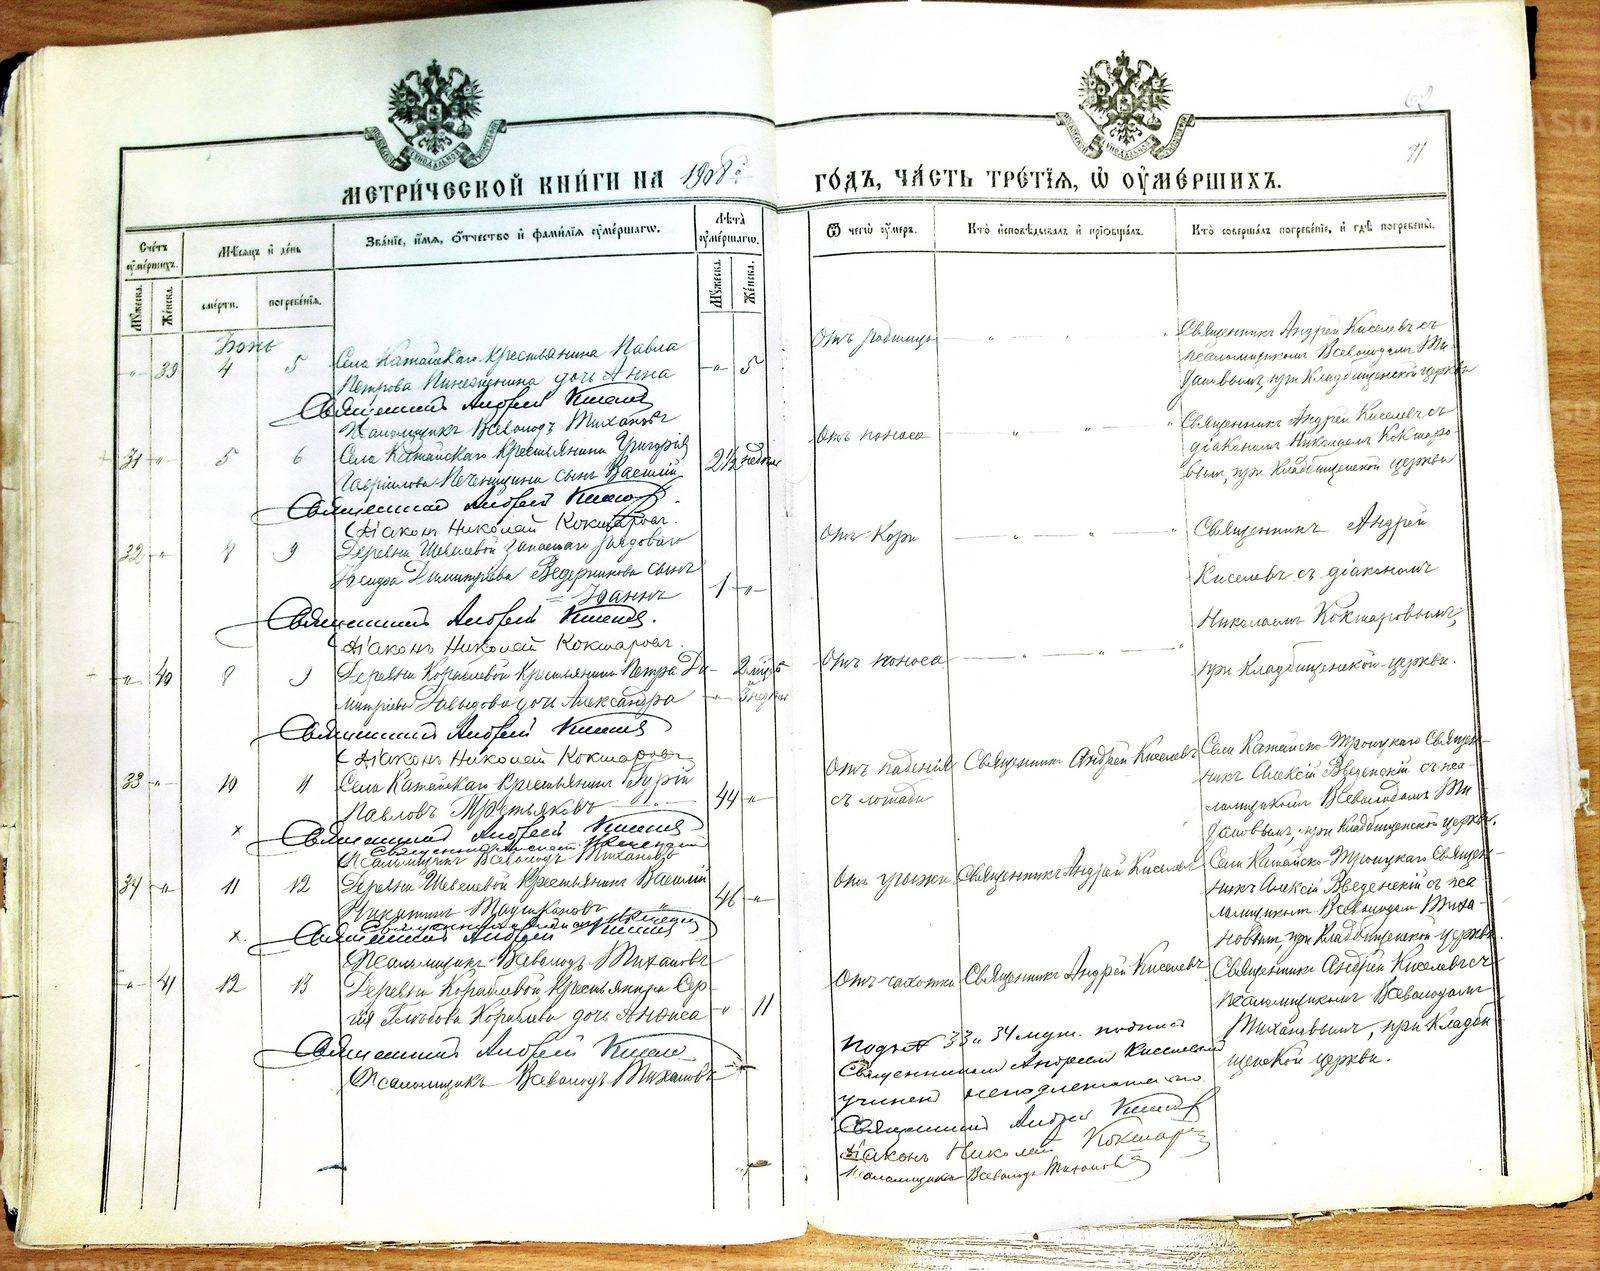 МЕТРИ́ЧЕСКОЙ КНИ́ГИ НА 1908й
ГО́ДЪ, ЧА́СТЬ ТРЕ́ТІѦ, Ѡ ОУМЕ́РШИХЪ.
62
71
Сче́тъ оуме́ршихъ.
Мѣ́сяцъ и день
Зва́ніе, и́мя, о́тчество и фами́лія оуме́ршагѡ.
Лѣта̀ оуме́ршагѡ.
Ѿ чегѡ̀ оу́меръ.
Кто̀ исповѣ́дывалъ и пріобща́лъ.
Кто̀ соверша́лъ погребе́ніе, и гдѣ̀ погребены̀.
Му́жеска.
Же́нска.
сме́рти.
погребе́нія.
Му́жеска.
Же́нска.
Іюнь
- " - 39 4 5 Села Катайскаго крестьянина Павла
Петрова дочь Анна - " - 5
Священникъ Андрей Киселевъ
Псаломщикъ Всеволодъ Тихановъ
От родимца
Священникъ Андрей Киселевъ съ
псаломщикомъ Всеволодомъ Ти-
хановымъ, при Кладбищенской церкви
31 - " - 5 6 Села Катайскаго крестьянина Григорія
Гавриилова Печенкина сынъ Василій 2 1/2 недели
Священникъ Андрей Киселевъ
Діаконъ Николай Кокшаровъ.
Отъ поноса
Священникъ Андрей Киселевъ съ
діакономъ Николаемъ Кокшаро-
вымъ, при Кладбищенской церкви
32 - " - 8 9 Деревни Шевелевой запаснаго рядового
Димитріева Ведерникова сынъ
Іоаннъ 1 - " -
Священникъ Андрей Киселевъ.
Діаконъ Николай Кокшаровъ.
Отъ Кори
Священникъ Андрей
Киселевъ съ діакономъ
Николаемъ Кокшаровымъ,
при Кладбищенской церкви.
- " - 40 8 9 Деревни Корабёлевой крестьянина Петра Ди-
митріева Давыдова дочь Александра
Священникъ Андрей Киселевъ
Діаконъ Николай Кокшаровъ
Отъ поноса
33 - " - 10 11 Села Катайскаго крестьянинъ Гурій
Павловъ Третьяковъ 44 - " -
Священникъ Андрей Киселевъ
Псаломщикъ Всеволодъ Тихановъ
Отъ паденія
съ лошади
Священникъ Андрей Киселевъ
Села Катайско-Троицкаго Священ-
никъ Алексій Введенскій съ пса-
ломщикомъ Всеволодомъ Ти-
хановымъ, при Кладбищенской церкви.
34 - " - 11 12 Деревни Шевелевой крестьянинъ Василій
Никитинъ 46 - " -
Священникъ Андрей Киселевъ
Псаломщикъ Всеволодъ Тихановъ
Отъ грыжи
Священникъ Андрей Киселевъ
Села Катайско-Троицкаго Священ-
никъ Алексій Введенскій съ пса
ломщикомъ Всеволодомъ Тиха-
новымъ, при Кладбищенской церкви.
- " - 41 12 13 Деревни крестьянина Сер-
гія Глѣбова дочь Анфиса " 11
Священникъ Андрей Киселевъ
Псаломщикъ Всеволодъ Тихановъ
Отъ чахотки
Священникъ Андрей Киселевъ
Священникъ Андрей Киселевъ съ
псаломщикомъ Всеволодомъ
Тихановымъ, при Кладби-
щенской церкви.
Подъ № 33 и 34 муж. подпись
Священникомъ Андреемъ Киселевымъ
учинена
Священникъ Андрей Киселевъ
Діаконъ Николай Кокшаровъ
Псаломщикъ Всеволодъ Тихановъ